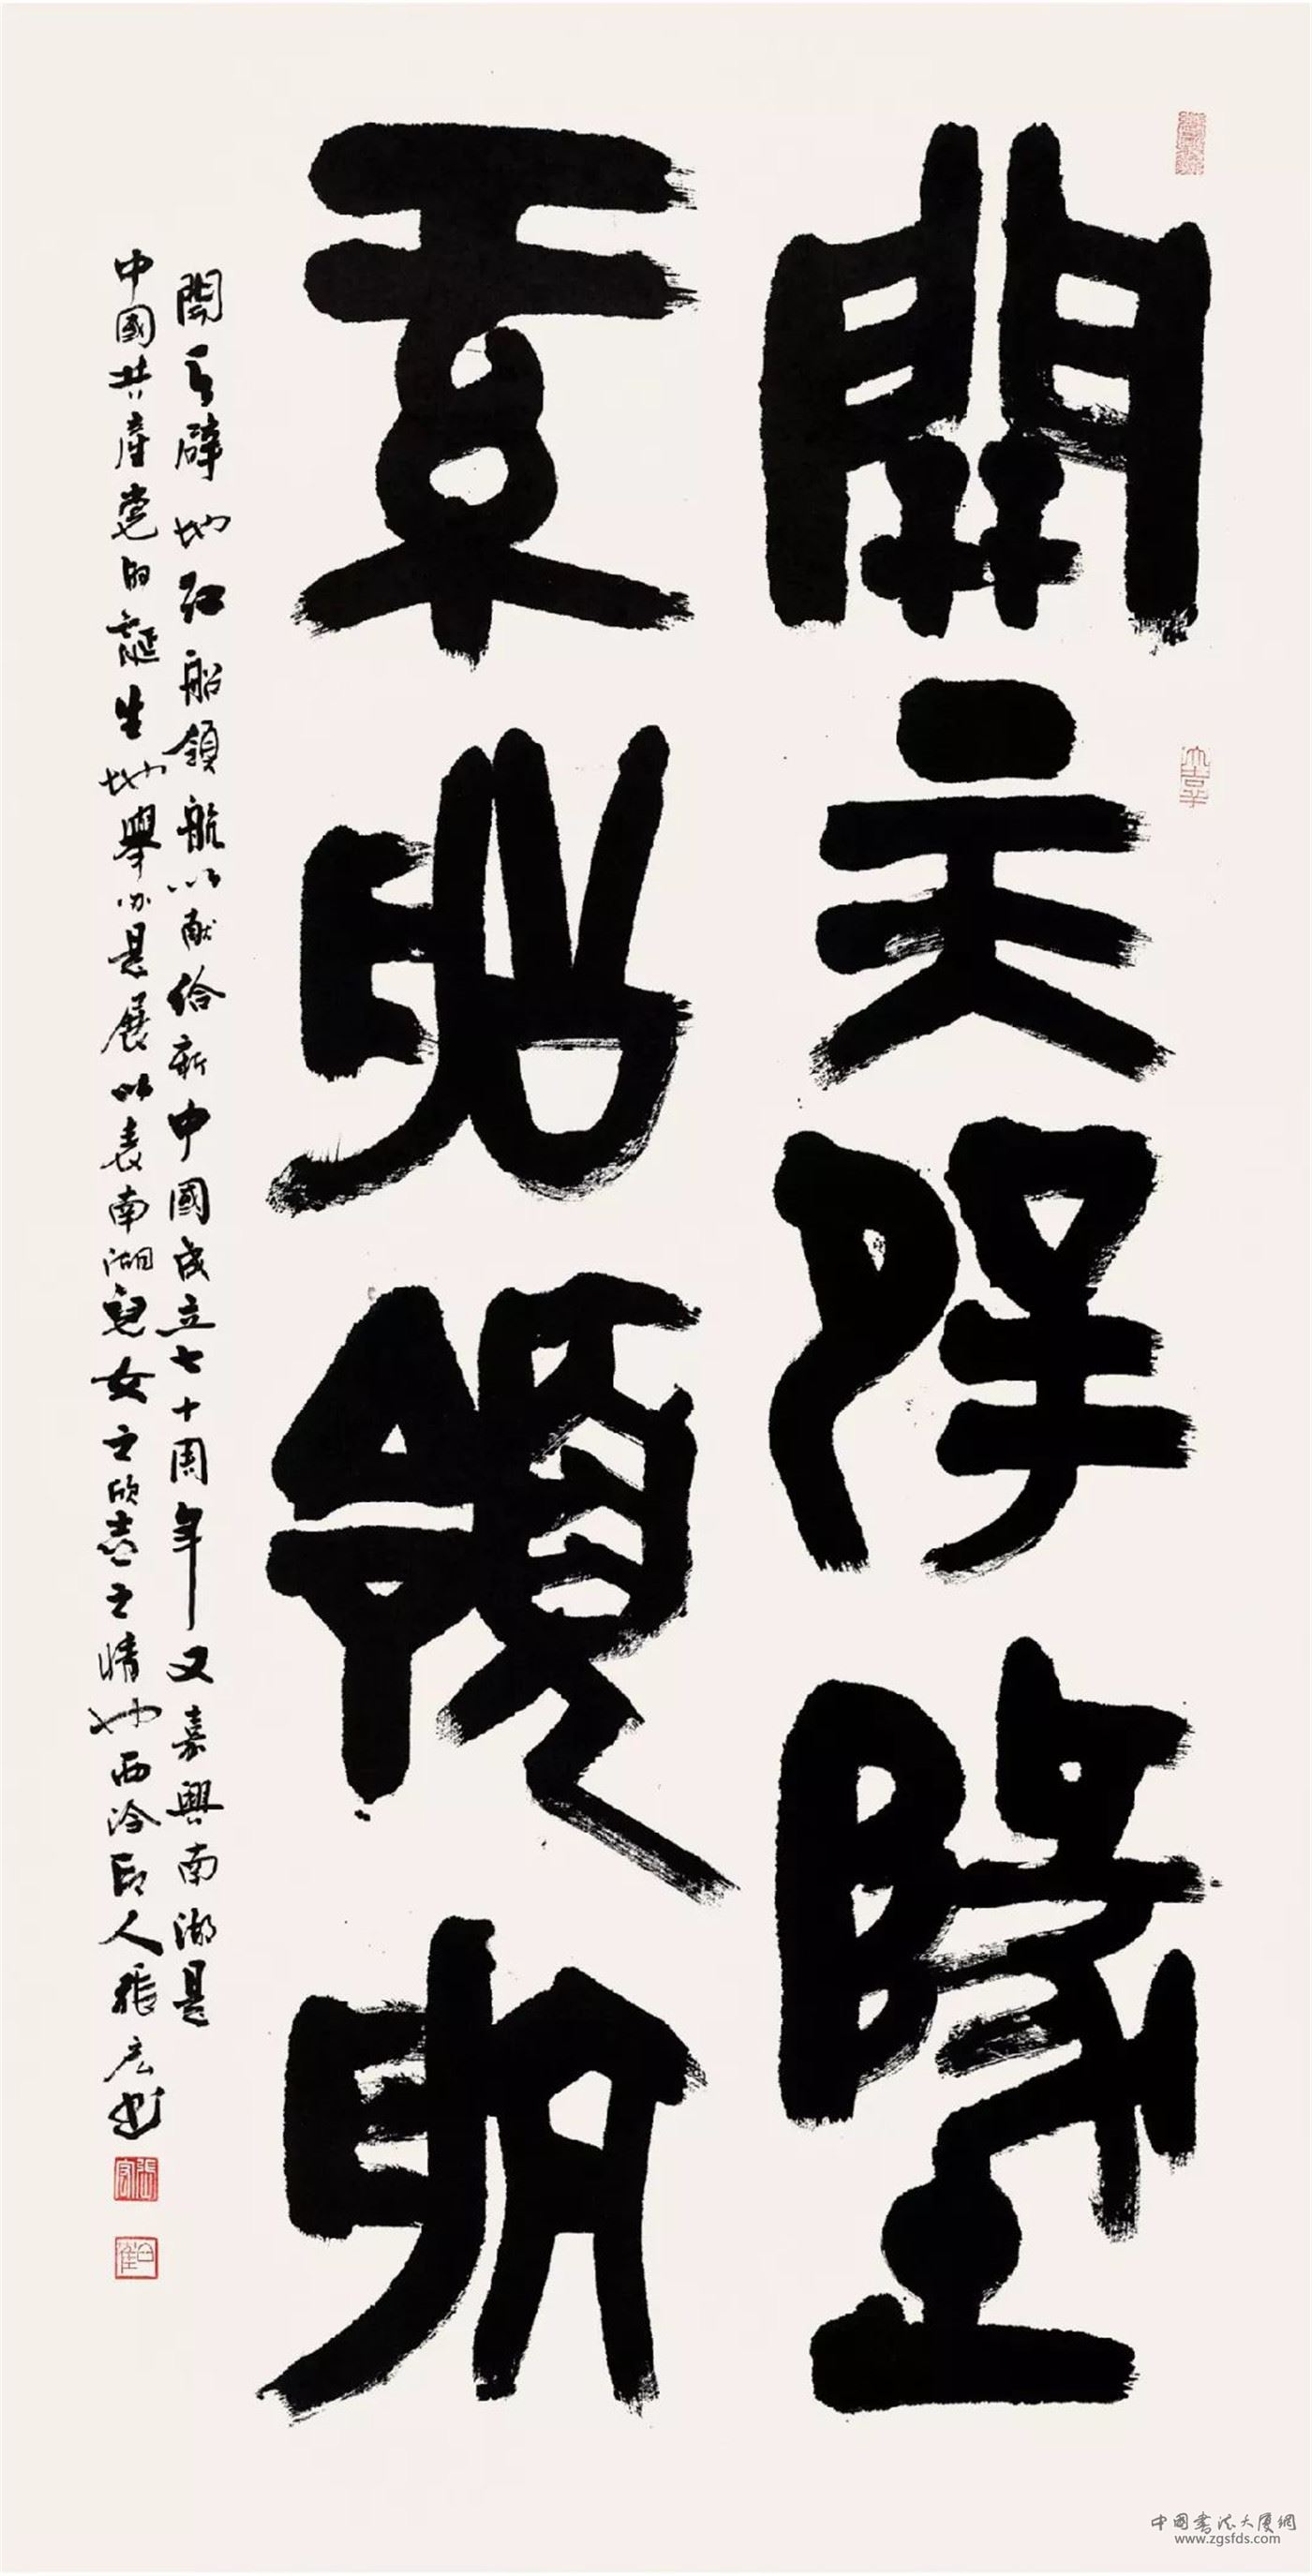 開天辟墬
紅船領航
開天辟地紅船領航以献給新中國成立七十周年又嘉興南湖是
中國共產党的誕生地舉办是展以表南湖兒女之欣喜之情也西泠印人張宏书
大吉羊
張宏
中國書法大廈網
www.zgsfds.com